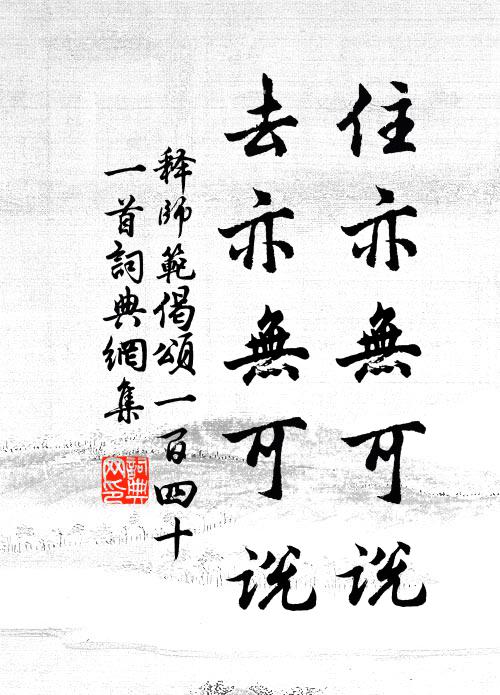 住亦無可説
去亦無可説
释師範偈頌一百四十
一首詞典網集
詞典網印